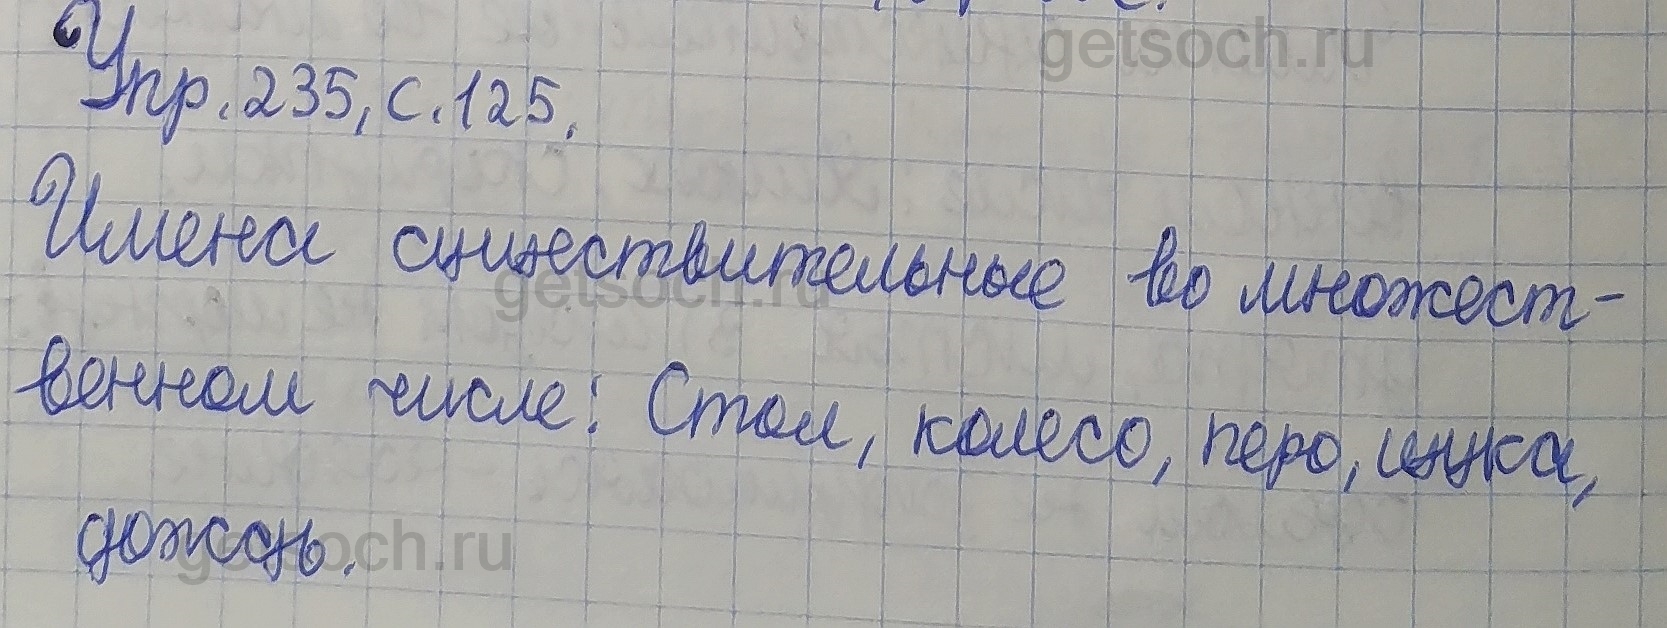 getsoch.ru
Упр. 235, с. 125.
Имена существительные во множест-
getsoch.ru
венном числе: Стол, колесо, перо, щука,
дождь.
getsoch.ru